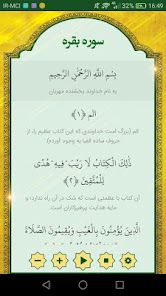 IR-MCI
16:49
سوره بقره
بِسْمِ اللَّهِ الرَّحْمَٰنِ الرَّحِيمِ
به نام خداوند بخشنده مهربان
الم ﴿۱﴾
الم (بزرگ است خداوندی که این کتاب عظیم را، از
حروف ساده الفبا به وجود آورده)
ذَٰلِكَ الْكِتَابُ لَا رَيْبَ ۛ فِيهِ ۛ هُدًى
لِّلْمُتَّقِينَ ﴿۲﴾
آن کتاب با عظمتی است که شک در آن راه ندارد؛ و
مایه هدایت پرهیزکاران است
الَّذِينَ يُؤْمِنُونَ بِالْغَيْبِ وَيُقِيمُونَ الصَّلَاةَ